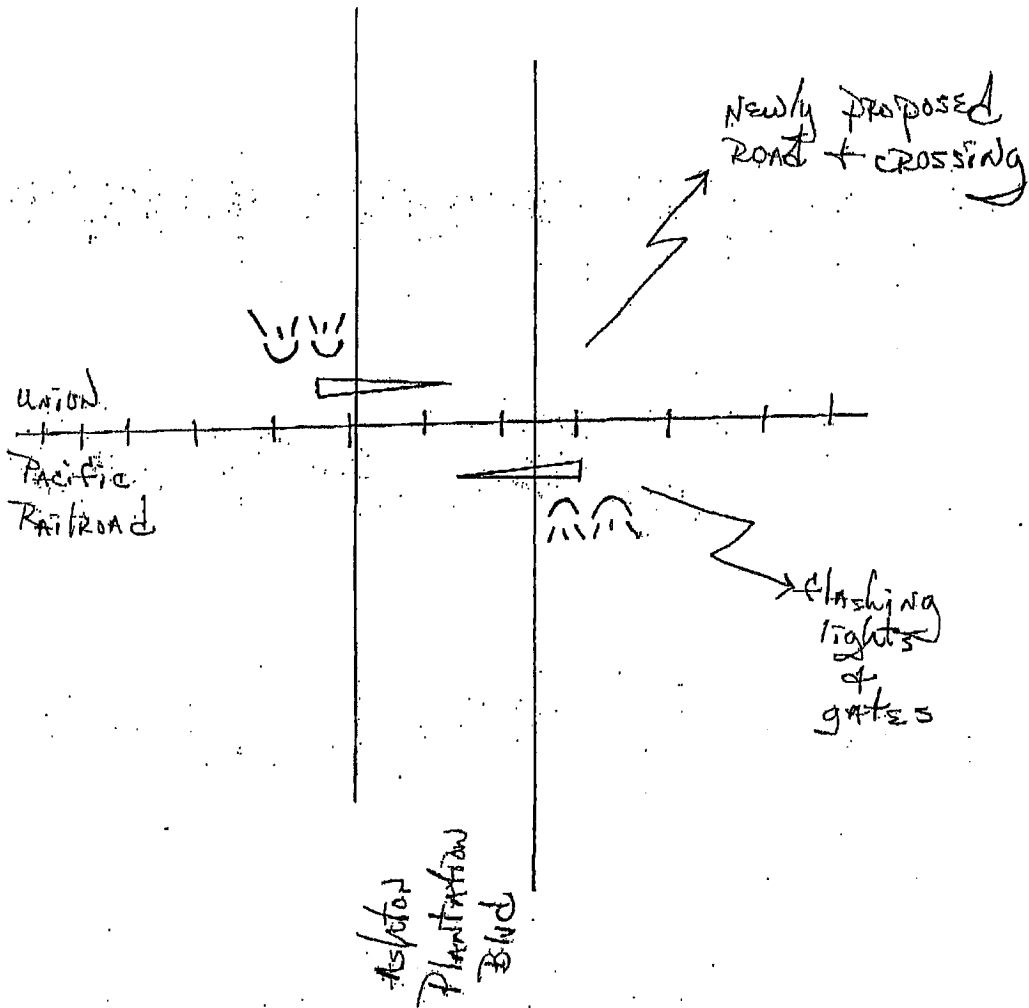 Newly proposed
Road + crossing
Union
Pacific
Railroad
flashing
lights
&
gates
Ashton
Plantation
Blvd